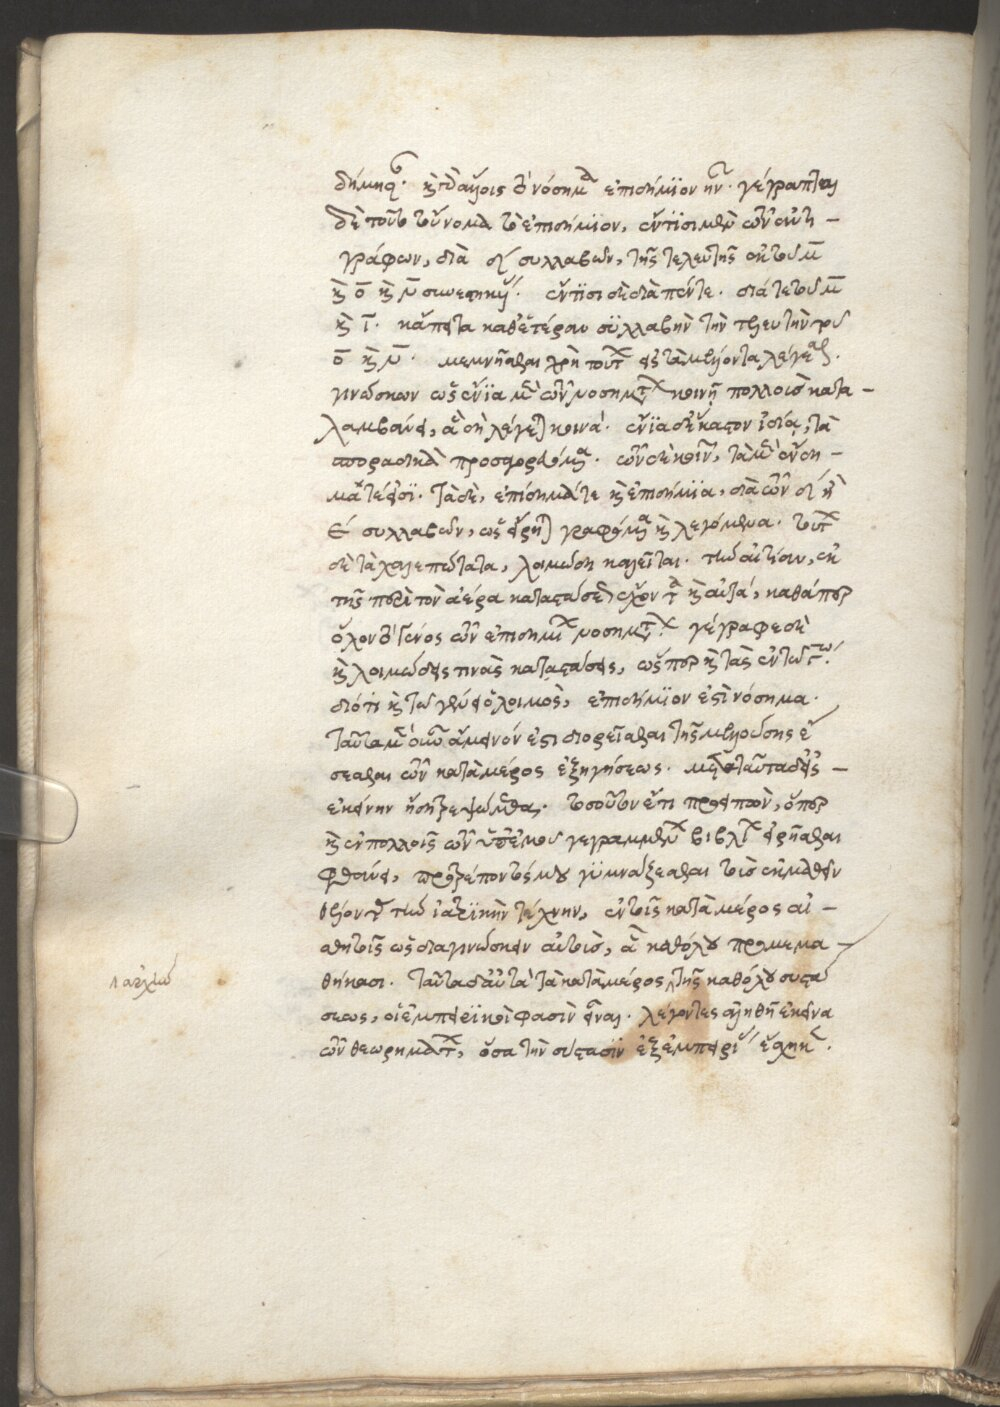 δήμησ· καὶ παρ' αὐτοῖς τὸ νόσημα ἐπιδήμϊον ἦν· γέγραπται
δὲ τοῦτο τοὔνομα τὸ ἐπιδήμιον, ἐν τισὶ μὲν τῶν ἀντι-
γράφων, διὰ δ συλλαβῶν, τῆς τελευτῆς ἐκ τοῦ μ
καὶ ο καὶ ν συνεστηκυίας· ἐν τισὶ δὲ διὰ πέντε· διά τε τοῦ μ
καὶ ι· κἄπειτα καθ' ἑτέραν συλλαβὴν τὴν τελευτὴν τοῦ
ο καὶ ν· μεμνῆσθαι χρὴ τούτων εἰς τὰ μέλλοντα λέγεσθαι·
γινώσκων ὡς ἔνϊα μὲν τῶν νοσημάτων κοινῇ πολλοῖς κατα-
λαμβάνει, ἃ δὴ λέγεται κοινά· ἔνϊα δὲ ἕκαστον ἰδίᾳ, τὰ
σποραδικὰ προσαγορευόμενα· τῶν δὲ κοινῶν, τὰ μὲν ἔνδη-
μά τέ εἰσϊ· τὰ δὲ, ἐπίδημά τε καὶ ἐπιδήμϊα, διὰ τῶν δ ἢ
ε συλλαβῶν, ὡς εἴρηται γραφόμενα καὶ λεγόμενα· τούτων
δὲ τὰ χαλεπώτατα, λοιμώδη καλεῖται· τὴν αἰτίαν, ἐκ
τῆς περὶ τὸν ἀέρα καταστάσεως ἔχοντα καὶ αὐτά, καθάπερ
ὅλον τὸ γένος τῶν ἐπιδημίων νοσημάτων· γέγραφε δὲ
καὶ λοιμώδεις τινὰς καταστάσεις, ὥσπερ καὶ τὰς ἐν τῷ γ·
διότι καὶ τῷ γένει ὁ λοιμὸς, ἐπιδήμϊον ἐστὶ νόσημα·
ταῦτα μὲν οὖν ἄμεινόν ἐστι διορεῖσθαι τῆς μελλούσης ἔ-
σεσθαι τῶν κατὰ μέρος ἐξηγήσεως· μετὰ ταῦτα δ' εἰς
ἐκείνην ἤδη τρεψώμεθα· τοσοῦτον ἔτι προειπὼν, ὅπερ
καὶ ἐν πολλοῖς τῶν ὑπ' ἐμοῦ γεγραμμένων βιβλίων εἰρῆσθαι
φθάνει, προτρέποντός μου γϋμνάζεσθαι τοὺς ἐκμαθεῖν
θέλοντας τὴν ἰατρϊκὴν τέχνην, ἐν τοῖς κατὰ μέρος αἰ-
σθητοῖς ὡς διαγινώσκειν αὐτοὺς, ἃ καθόλου προμεμα-
θήκασι· ταῦτα δ' αὐτὰ τὰ κατὰ μέρος, τῆς καθόλου συστά
σεως, οἱ ἐμπειρϊκοὶ φασὶν εἶναι· λέγοντες ἀληθῆ ἐκεῖνα
τῶν θεωρημάτων, ὅσα τὴν σύστασϊν ἐξ ἐμπειρίας εἴληφε·